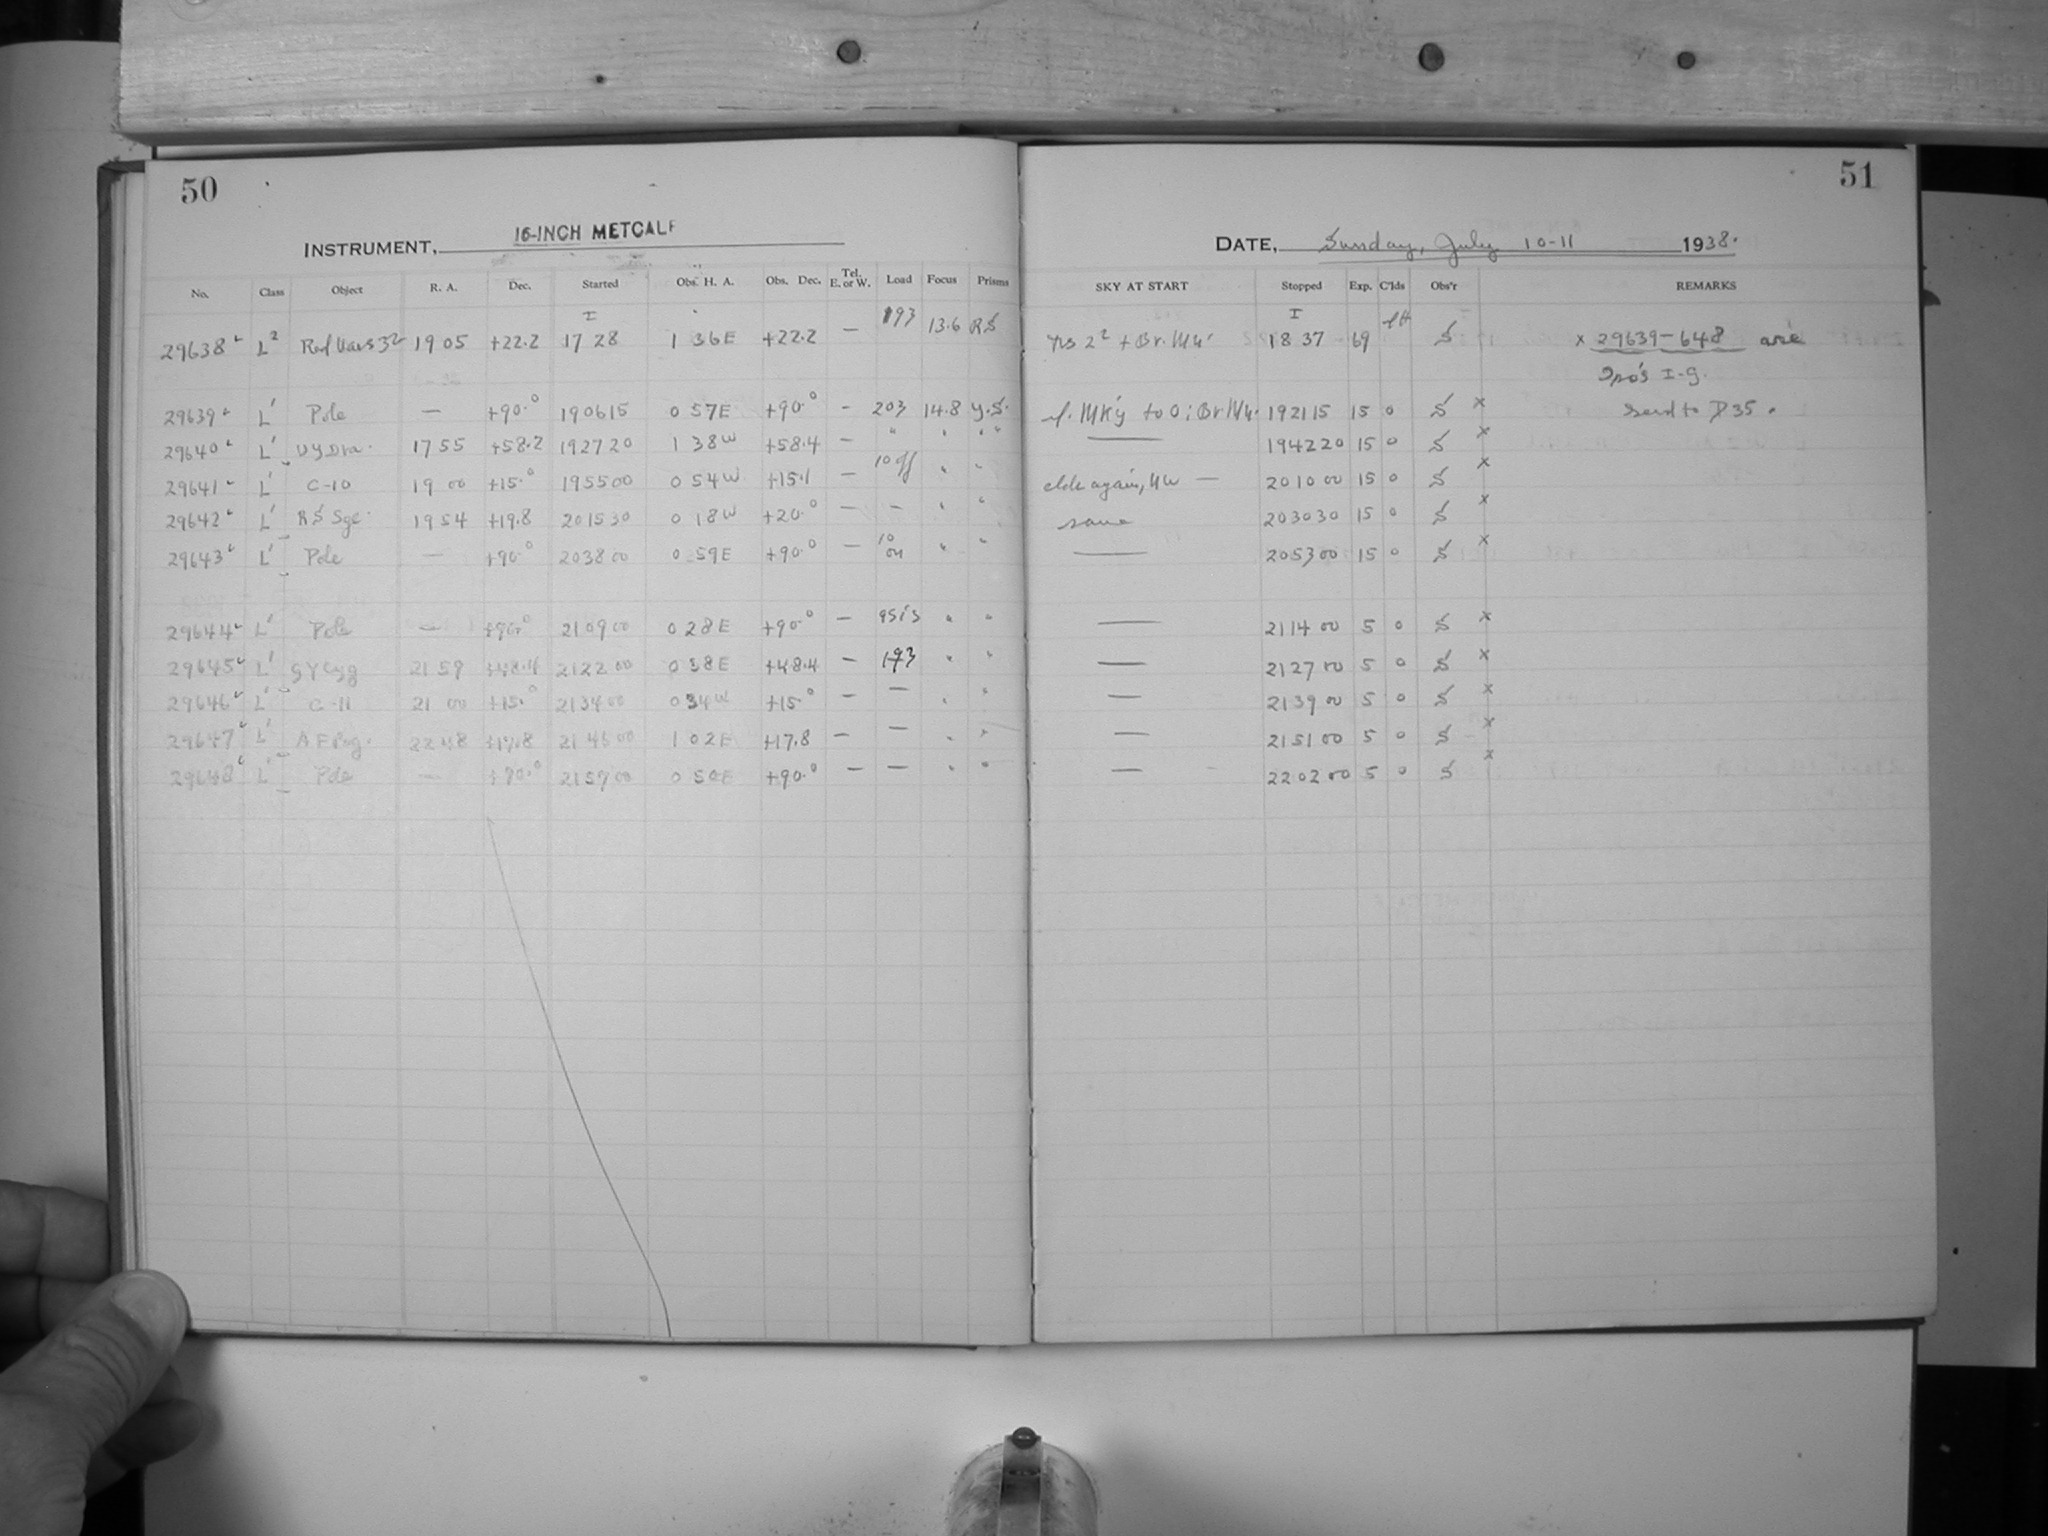 50
INSTRUMENT, 16-INCH METCALF
No. Class Object R. A. Dec. Started Obs. H. A. Obs. Dec. Tel. E. or W. Load Focus Prisms
I
29638 L2 Red Vars 32 19 05 +22.2 17 28 1 36E +22.2 — 193 13.6 RS
29639 L' Pole — +90.° 190615 0 57E +90.° - 203 14.8 Y.S.
29640 L' UY Dra. 17 55 +58.2 192720 1 38W +58.4 — " " "
29641 L' C-10 19 00 +15.° 195500 0 54W +15.1 — 10 off " "
29642 L' RS Sge. 19 54 +19.8 201530 0 18W +20.° — — " "
29643 L' Pole — +90.° 203800 0 59E +90.° — 10 on " "
29644 L' Pole — +90.° 210900 0 28E +90.° — " "
29645 L' Cyg 21 59 +48.4 212200 0 38E +48.4 — 193 " "
29646 L' C-11 21 00 +15.° 213400 0 34W +15.° — — " "
29647 L' AF Peg. 22 48 +17.8 214600 1 02E +17.8 — — " "
29648 L' Pole — +90.° 215700 0 50E +90.° — — " "
51
DATE, Sunday, July 10-11 1938.
SKY AT START Stopped Exp. C'lds Obs'r REMARKS
I
18 37 69 S x 29639-648 are
I-g.
192115 15 0 S x Send to D35.
— 194220 15 0 S x
again, — 201000 15 0 S x
same 203030 15 0 S x
— 205300 15 0 S x
— 211400 5 0 S x
— 212700 5 0 S x
— 213900 5 0 S x
— 215100 5 0 S x
— 220200 5 0 S x